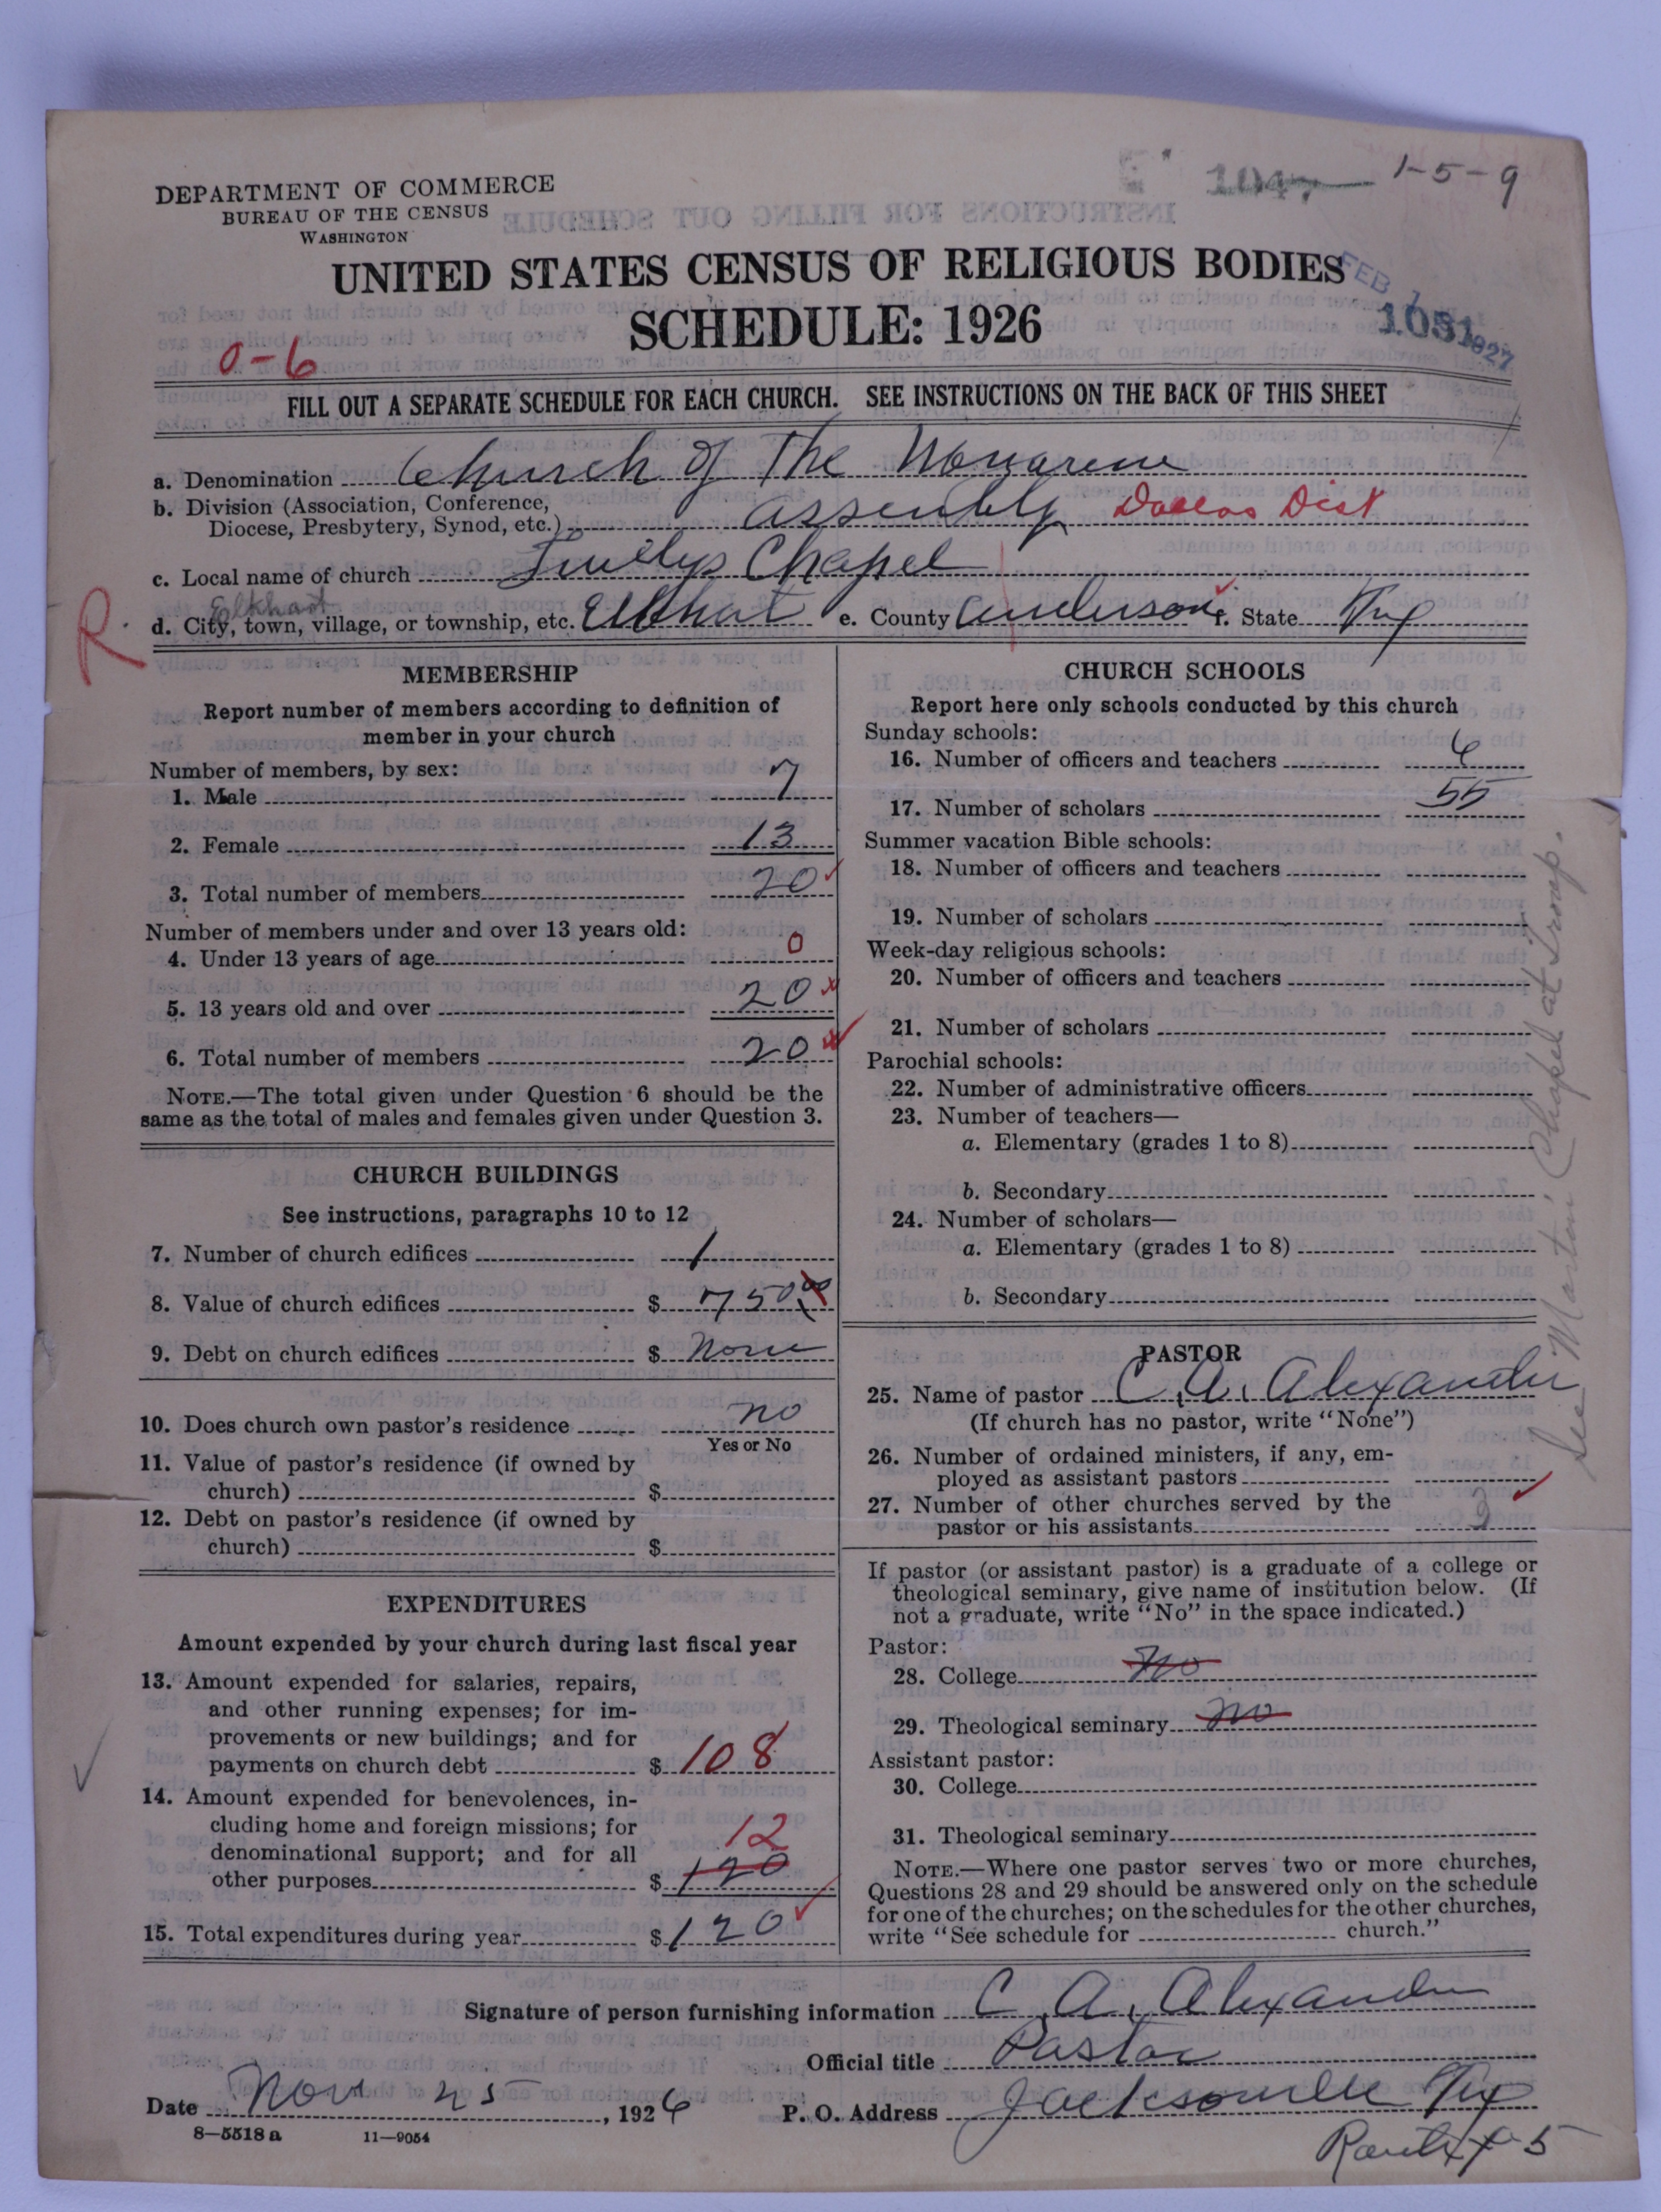 DEPARTMENT OF COMMERCE
BUREAU OF THE CENSUS
WASHINGTON
1-5-9
UNITED STATES CENSUS OF RELIGIOUS BODIES
SCHEDULE: 1926
FEB 1927
1051
0-6
FILL OUT A SEPARATE SCHEDULE FOR EACH CHURCH. SEE INSTRUCTIONS ON THE BACK OF THIS SHEET
a. Denomination Church of The Nazarene
b. Division (Association, Conference,
Diocese, Presbytery, Synod, etc.) Assembly Dallas Dist
c. Local name of church Chapel
Elkhart
R.
d. City, town, village, or township, etc. Elkhat e. County Anderson f. State Tex
MEMBERSHIP
Report number of members according to definition of
member in your church
Number of members, by sex:
1. Male 7
2. Female 13
3. Total number of members 20
Number of members under and over 13 years old:
4. Under 13 years of age 0
5. 13 years old and over 20
6. Total number of members 20
NOTE.—The total given under Question 6 should be the
same as the total of males and females given under Question 3.
CHURCH BUILDINGS
See instructions, paragraphs 10 to 12
7. Number of church edifices 1
8. Value of church edifices $ 750 00
9. Debt on church edifices $ None
10. Does church own pastor's residence no
Yes or No
11. Value of pastor's residence (if owned by
church) $
12. Debt on pastor's residence (if owned by
church) $
EXPENDITURES
Amount expended by your church during last fiscal year
13. Amount expended for salaries, repairs,
and other running expenses; for im-
provements or new buildings; and for
payments on church debt $ 108
14. Amount expended for benevolences, in-
cluding home and foreign missions; for
denominational support; and for all
12
other purposes $ 120
15. Total expenditures during year $ 120
CHURCH SCHOOLS
Report here only schools conducted by this church
Sunday schools:
16. Number of officers and teachers 6
17. Number of scholars 55
Summer vacation Bible schools:
18. Number of officers and teachers
19. Number of scholars
Week-day religious schools:
20. Number of officers and teachers
21. Number of scholars
Parochial schools:
22. Number of administrative officers
23. Number of teachers—
a. Elementary (grades 1 to 8)
b. Secondary
24. Number of scholars—
a. Elementary (grades 1 to 8)
b. Secondary
PASTOR
25. Name of pastor C. A. Alexander
(If church has no pastor, write "None")
26. Number of ordained ministers, if any, em-
ployed as assistant pastors
27. Number of other churches served by the
pastor or his assistants 3
If pastor (or assistant pastor) is a graduate of a college or
theological seminary, give name of institution below. (If
not a graduate, write "No" in the space indicated.)
Pastor:
28. College No
29. Theological seminary no
Assistant pastor:
30. College
31. Theological seminary
NOTE.—Where one pastor serves two or more churches,
Questions 28 and 29 should be answered only on the schedule
for one of the churches; on the schedules for the other churches,
write "See schedule for church."
See Martin Chapel at Troup.
Signature of person furnishing information C. A. Alexander
Official title Pastor
Date Nov 25, 1926 P. O. Address Jacksonville Tex
Route # 5
8—5518 a 11—9054